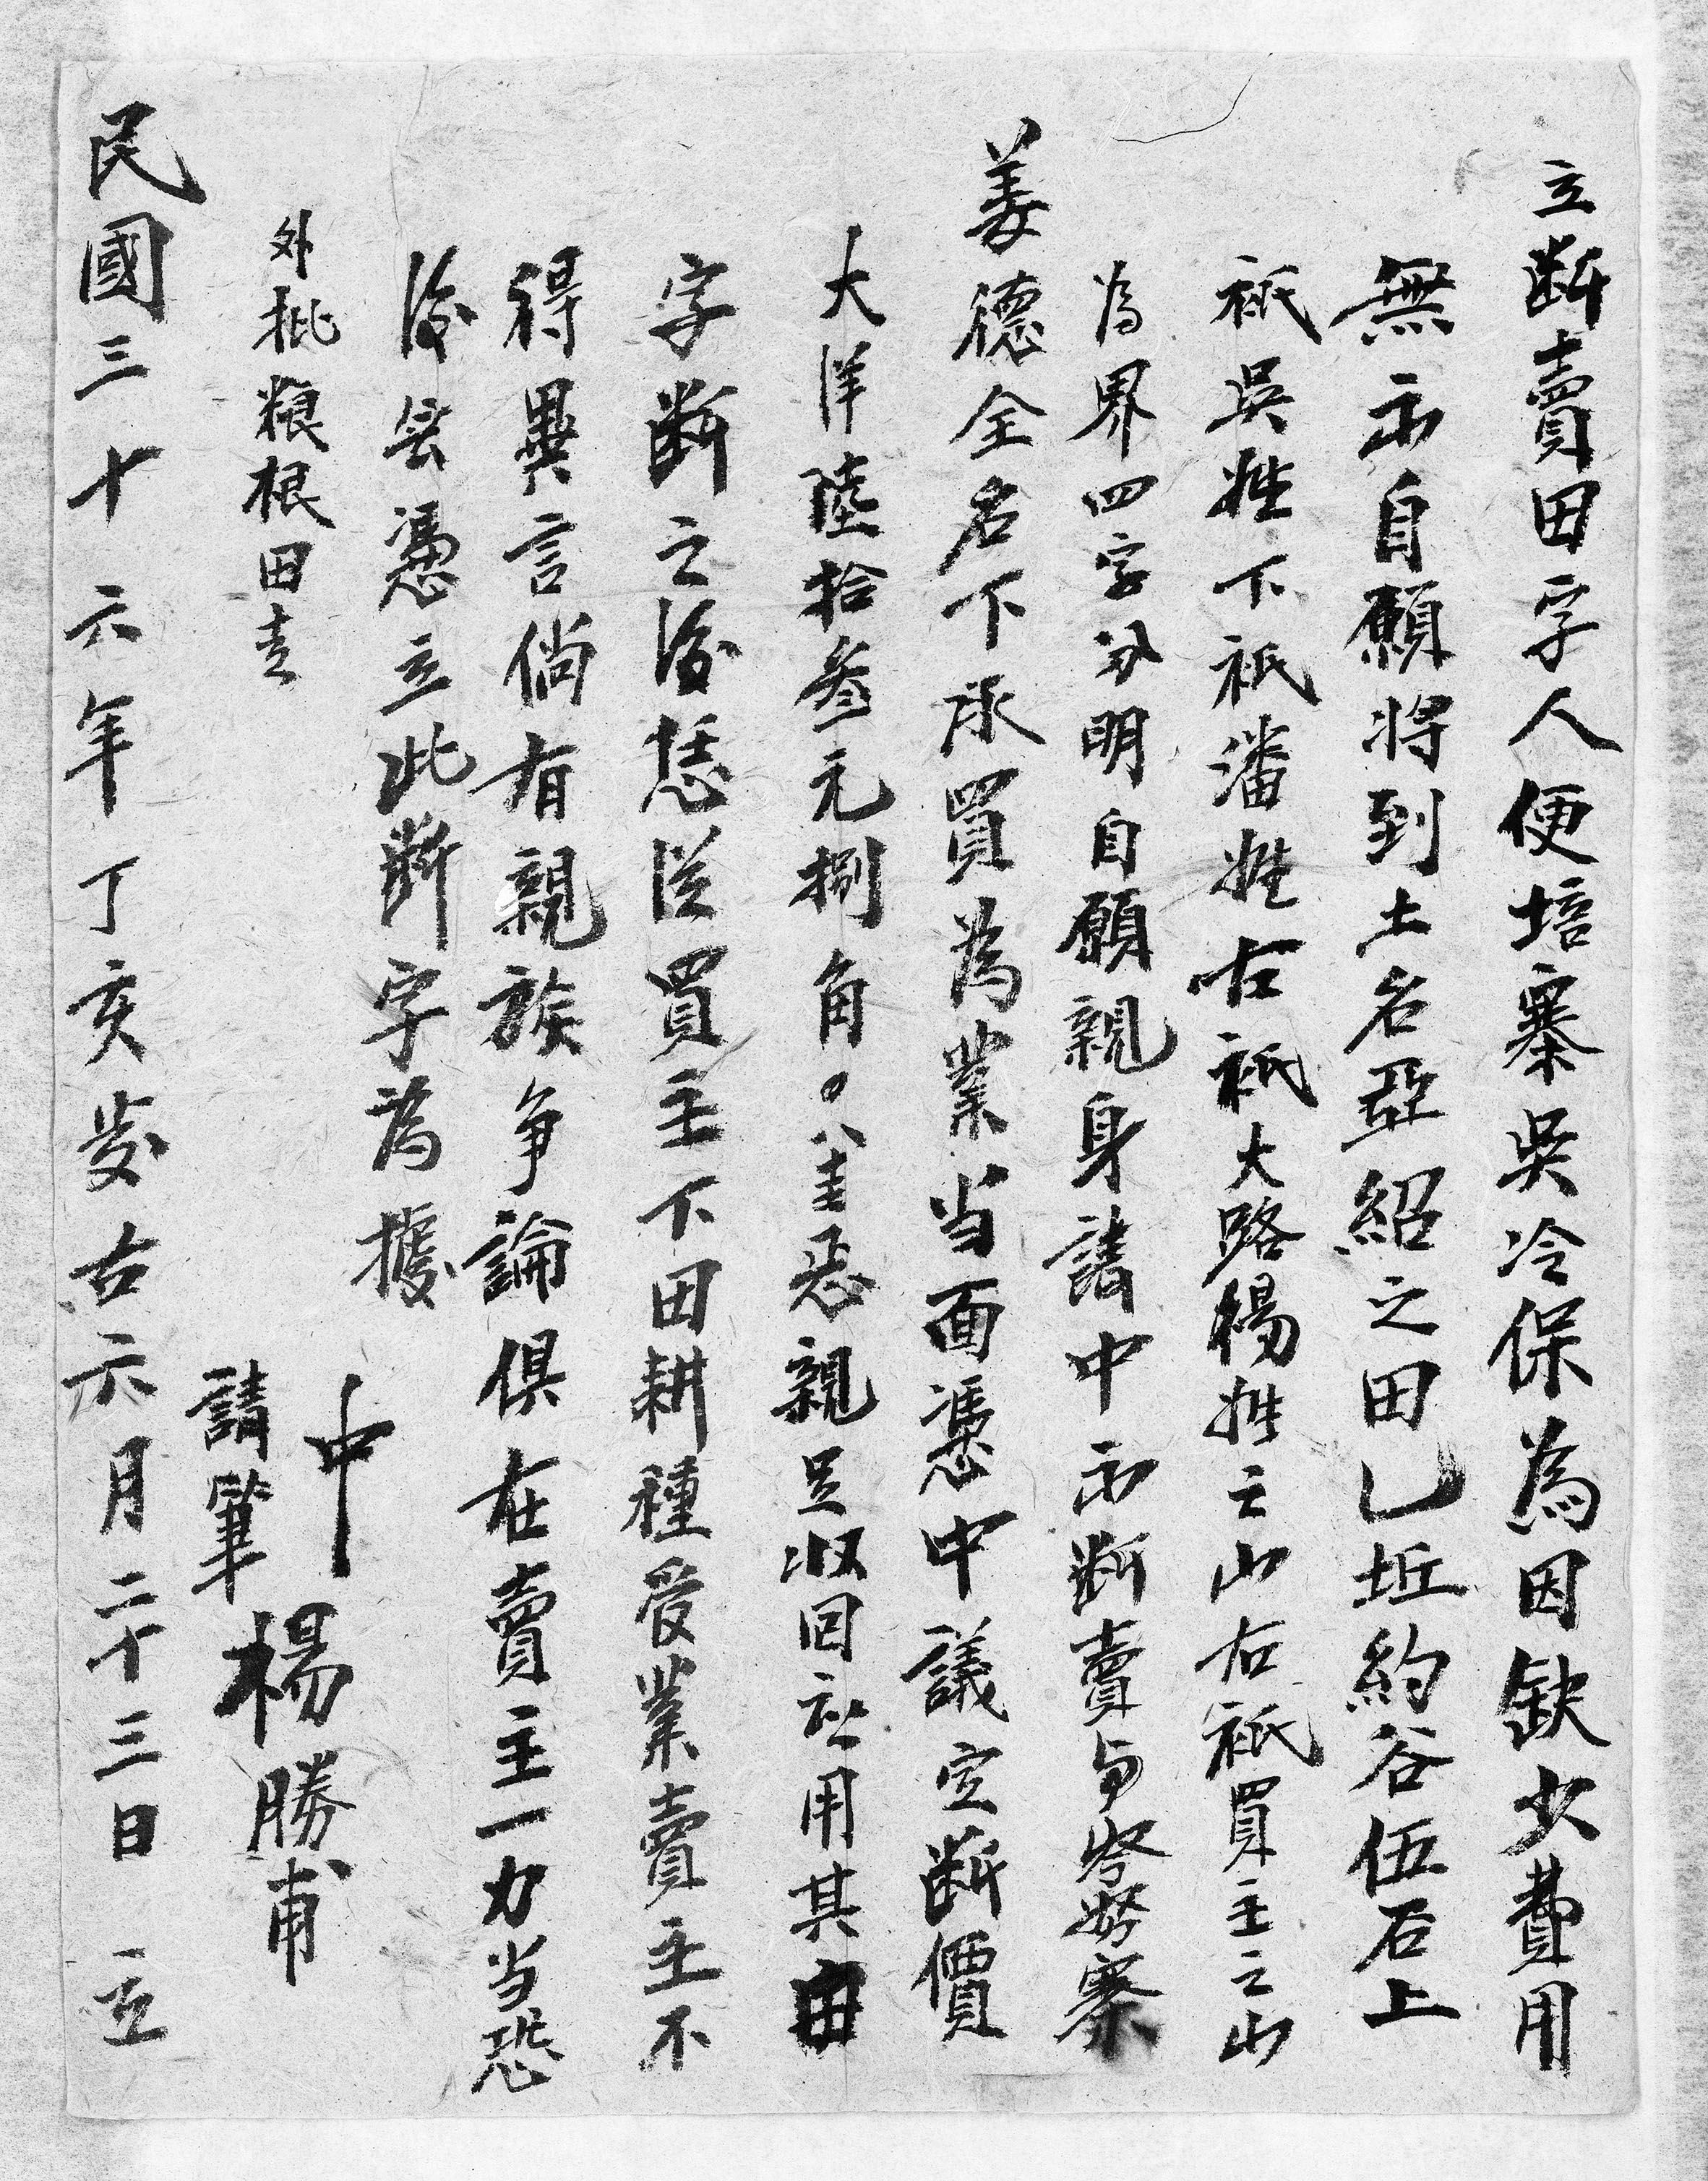 立断賣田字人便培寨吳冷保為因缺少費用
無示自願將到土名亞紹之田乚坵約谷伍石上
祇吳姓下祇潘姓右祇大路楊姓云山右祇買主云山
為界四字分明自願親身請中示断賣与寨
姜德全名下承買為業当面憑中議定断價
大洋陸拾叁元捌角親足収回用其田
字断之後恁從買主下田耕種受業賣主不
得異言倘有親族争論俱在賣主一力当恐
後無憑立此断字為據
外批粮根田
中
請筆 楊勝甫
民國三十六年丁亥歲古六月二十三日 立